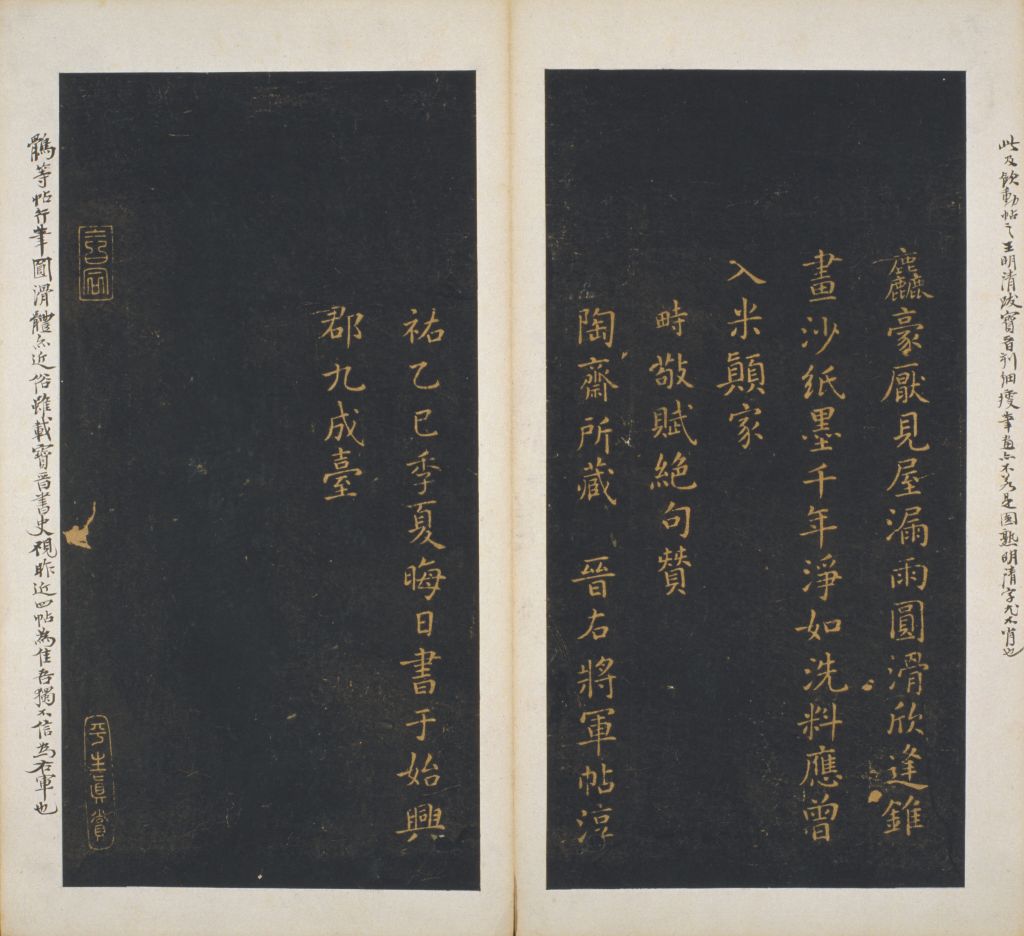 此及飲動帖之王明清跋寶晉刻細瘦筆畫亦不若是圓熟明清字尤不肖也
麤豪厭見屋漏雨圓滑欣逢錐
畫沙紙墨千年淨如洗料應曾
入米顛家
時敬賦絕句贊
陶齋所藏 晉右將軍帖淳
祐乙巳季夏晦日書于始興
郡九成臺
平生真賞
等帖行筆圓滑體亦近俗雖載寶晉書史視昨近四帖為佳吾獨不信為右軍也